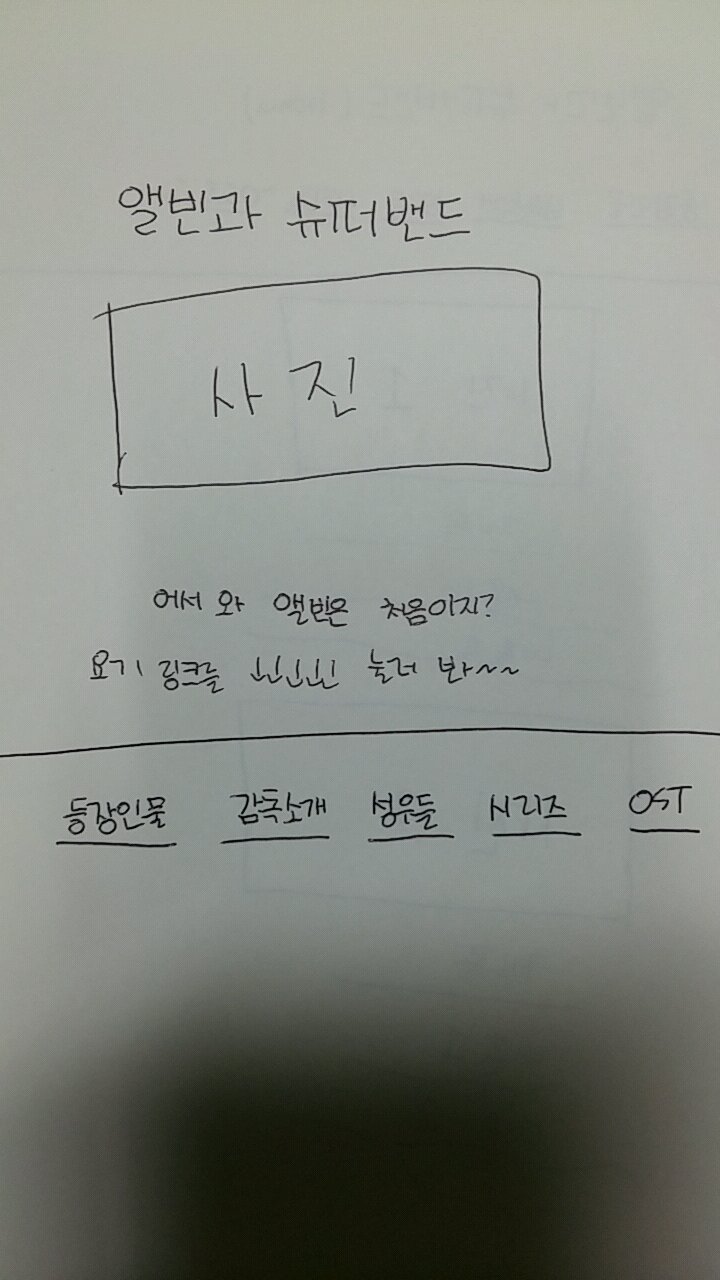 앨빈과 슈퍼밴드
사진
어서 와 앨빈은 처음이지?
요기 링크들 눌러 봐~~
등장인물 감독소개 성우들 시리즈 OST